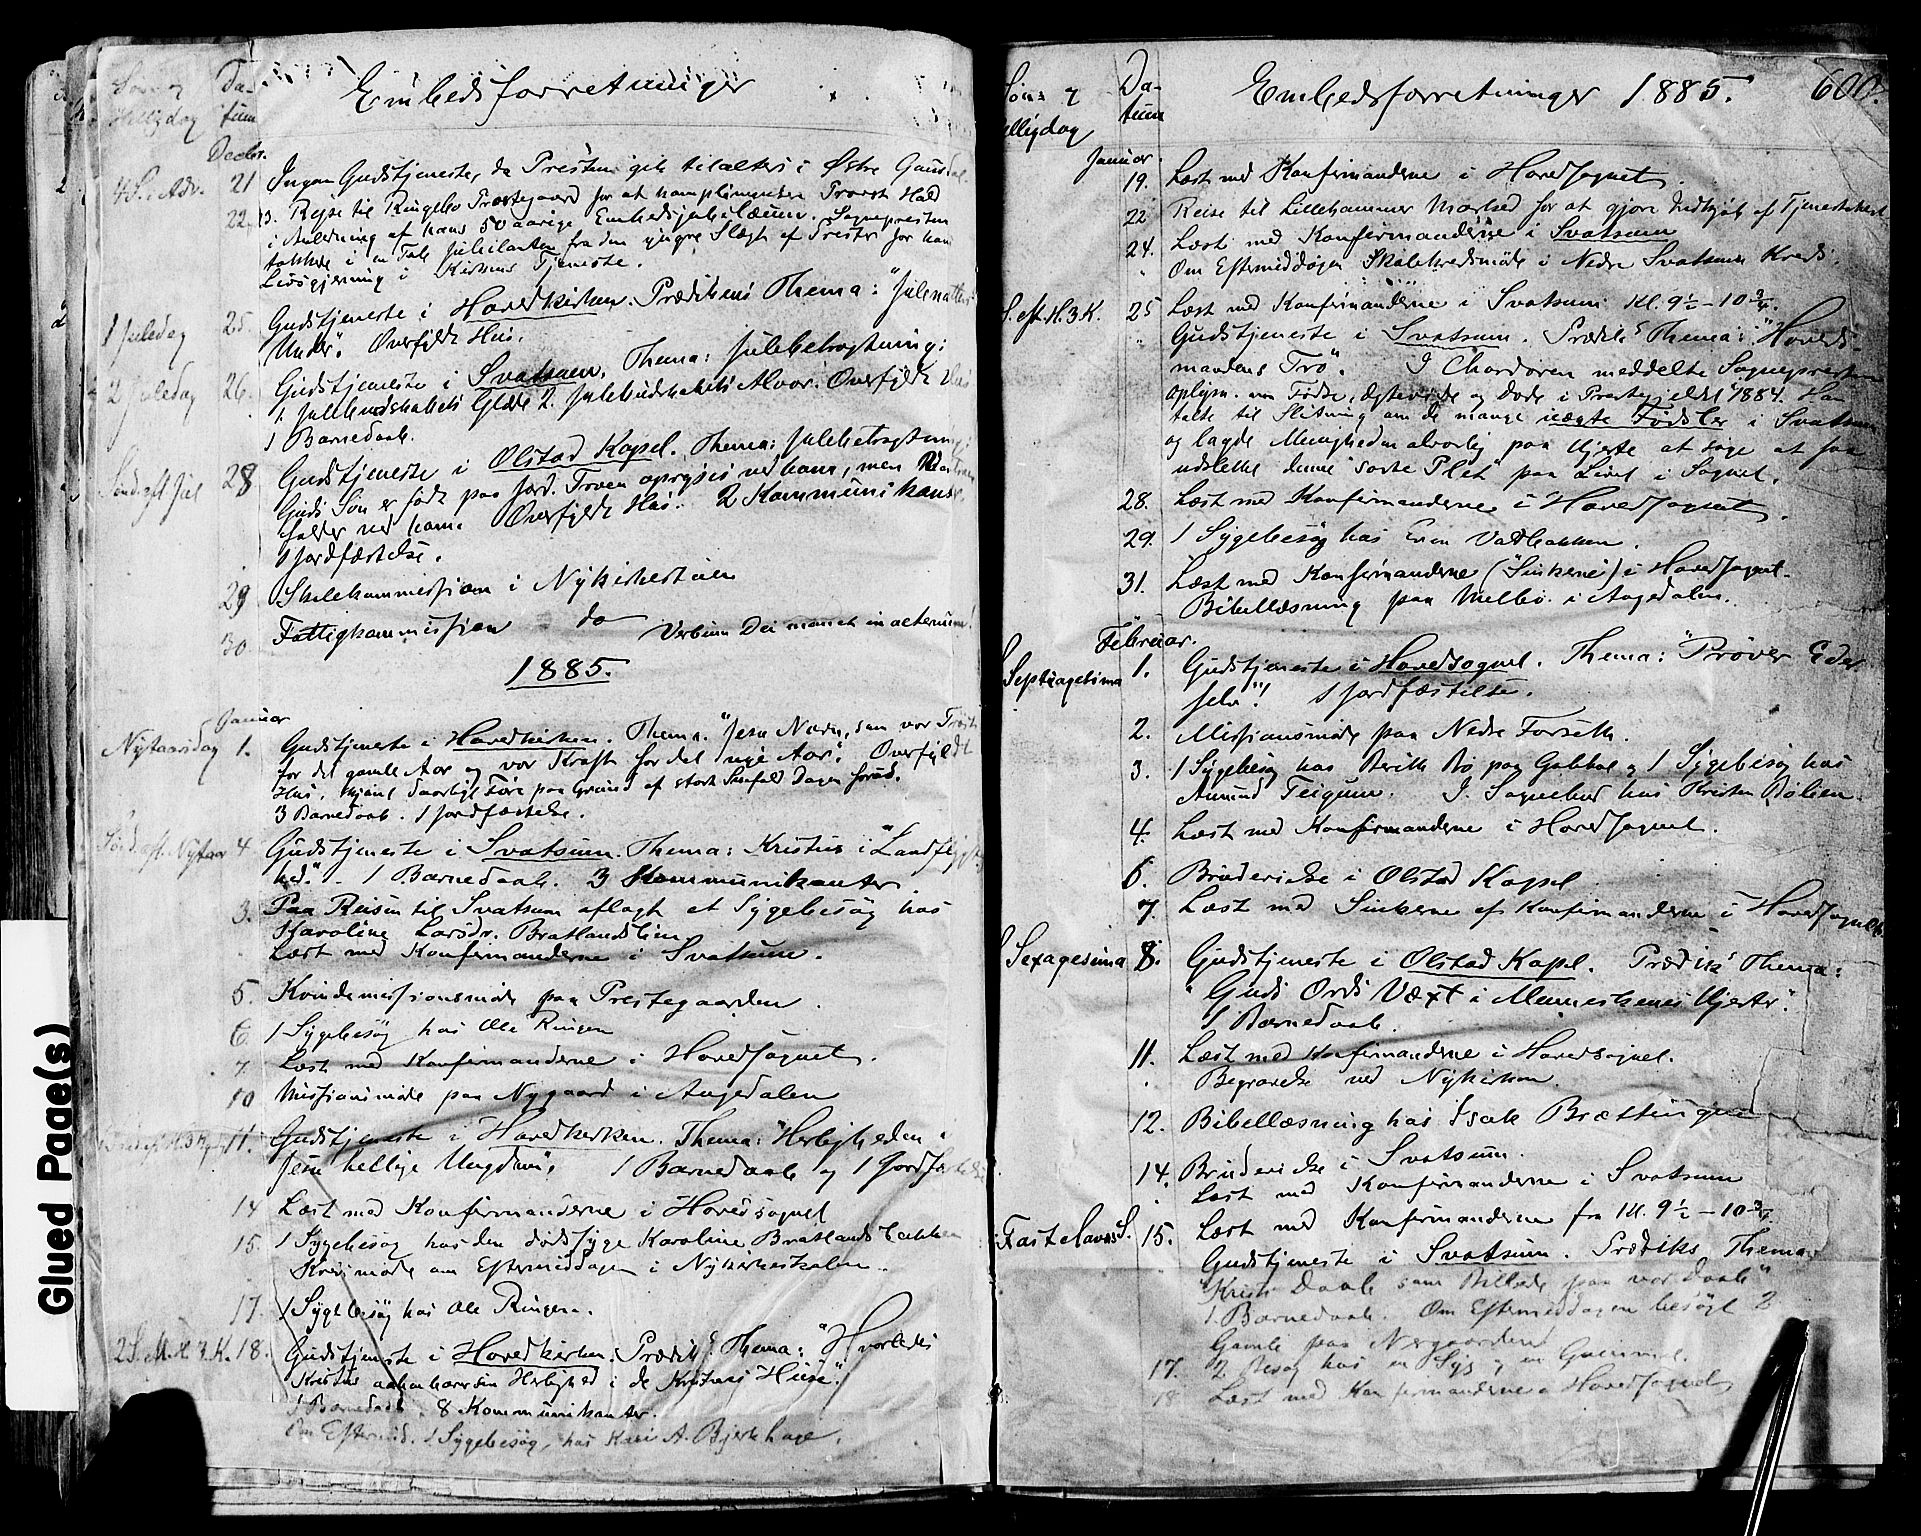 Søn og Helligdag
Datum
Embedsforretninger
Decbr.
4 S. i Adv. 21 Ingen Gudstjeneste, da Presten gik tilalters i Østre Gausdal.
22, 23. Reise til Ringebo Præstegaard for at komplimentere Provst Hald
i Anledning af hans 50 aarige Embedsjubilæum. Sognepresten
takkede i en Tale Jubilanten fra den yngre Slægt af Prester for hans
Livsgjerning i Kirkens Tjeneste.
1 Juledag 25. Gudstjeneste i Hovedkirken. Prædikens Thema: "Julenattens
Under". Overfyldt Hus.
2 Juledag 26. Gudstjeneste i Svatsum. Thema: Julebetragtning:
1. Julebudskabets Glæde 2. Julebudskabets Alvor. Overfyldt Hus
1 Barnedaab.
Sønd. eft. Jul 28. Gudstjeneste i Olstad Kapel. Thema: Julebetragtning:
Guds Søn er født paa Jord. Troen opreises ved ham, men
falder ved ham. Overfyldt Hus. 2 Kommunikanter.
1 Jordfæstelse.
29 Skolekommission i Nykirkestuen
30. Fattigkommission do Verbum Dei manet in aeternum!
1885.
Januar
Nytaarsdag 1. Gudstjeneste i Hovedkirken. Thema: "Jesu Navn, som vor Trøst
for det gamle Aar og vor Kraft for det nye Aar". Overfyldt
Hus, skjønt daarligt Føre paa Grund af stort Snefald Dagen forud.
3 Barnedaab. 1 Jordfæstelse.
Sønd. eft. Nytaar 4. Gudstjeneste i Svatsum. Thema: Kristus i "Landflygtig
hed". 1 Barnedaab. 3 Kommunikanter.
3. Paa Reisen til Svatsum aflagt et Sygebesøg hos
Karoline Larsdr. Bratlandslien
Læst med Konfirmanderne i Svatsum.
5. Kvindemissionsmøde paa Prestegaarden.
6. 1 Sygebesøg hos Ole Ringen
7. Læst med Konfirmanderne i Hovedsognet.
10 Missionsmøde paa Nygaard i Augedalen
11. Gudstjeneste i Hovedkirken. Thema: "Herligheden i
Jesu hellige Ungdom". 1 Barnedaab og 1 Jordfæstelse
14 Læst med Konfirmanderne i Hovedsognet
15. 1 Sygebesøg hos den dødssyge Karoline Bratlandsbakken
Kredsmøde om Eftermiddagen i Nykirkeskolen.
17. 1 Sygebesøg hos Ole Ringen.
2 S. e. H. 3 K. 18. Gudstjeneste i Hovedkirken. Prædik. Thema: "Hvorledes
Kristus aabenbarer sin Herlighed i de Kristnes Huse".
1 Barnedaab. 8 Kommunikanter.
Om Eftermid. 1 Sygebesøg, hos Kari A. Bjerkhage.
Søn og Helligdag
Datum
Embedsforretninger 1885. 600.
Januar.
19. Læst med Konfirmanderne i Hovedsognet.
22 Reise til Lillehammer Marked for at gjøre Indkjøb af Tjenestehest
24. Læst med Konfirmanderne i Svatsum
" Om Eftermiddagen Skolekredsmøde i Nedre Svatsum Kreds.
S. eft. H. 3 K. 25 Læst med Konfirmanderne i Svatsum Kl. 9½ – 10¾
" Gudstjeneste i Svatsum. Prædik's Thema: "Høveds-
mandens Tro". I Chordøren meddelte Sognepresten
Oplysn. om Fødte, Ægteviede og Døde i Prestegjeldet 1884. Han
talte til Slutning om de mange uægte Fødsler i Svatsum
og lagde Menigheden alvorlig paa Hjerte at søge at faa
udslettet denne "sorte Plet" paa Livet i Sognet.
28. Læst med Konfirmanderne i Hovedsognet.
29. 1 Sygebesøg hos Even Vadbakken.
31. Læst med Konfirmanderne ("Sinkerne") i Hovedsognet.
Bibellæsning paa Melbø i Augedalen.
Februar.
Septuagesima 1. Gudstjeneste i Hovedsognet. Thema: "Prøver Eder
selv"! 1 Jordfæstelse.
2. Missionsmøde paa Nedre Forseth.
3. 1 Sygebesøg hos Berith Bø paa Gobbal og 1 Sygebesøg hos
Amund Teigum. I Sognebud hos Kristen Bølien.
4. Læst med Konfirmanderne i Hovedsognet.
6. Brudevielse i Olstad Kapel
7. Læst med Sinkerne af Konfirmanderne i Hovedsognet.
Sexagesima 8. Gudstjeneste i Olstad Kapel. Prædik's Thema:
"Guds Ords Væxt i Menneskenes Hjerter".
1 Barnedaab.
11. Læst med Konfirmanderne i Hovedsognet.
Begravelse ved Nykirken.
12. Bibellæsning hos Isak Brættingen
14. Brudevielse i Svatsum.
Læst med Konfirmanderne i Svatsum
Fastelavns S. 15. Læst med Konfirmanderne fra Kl. 9½ – 10¾
Gudstjeneste i Svatsum. Prædiks Thema
Kristi Daab som Billede paa vor Daab"
1 Barnedaab. Om Eftermiddagen besøgt 2
Gamle paa Nørgaarden
17. 2 Besøg hos en Syg og en Gammel.
18. Læst med Konfirmanderne i Hovedsognet
Glued Page(s)